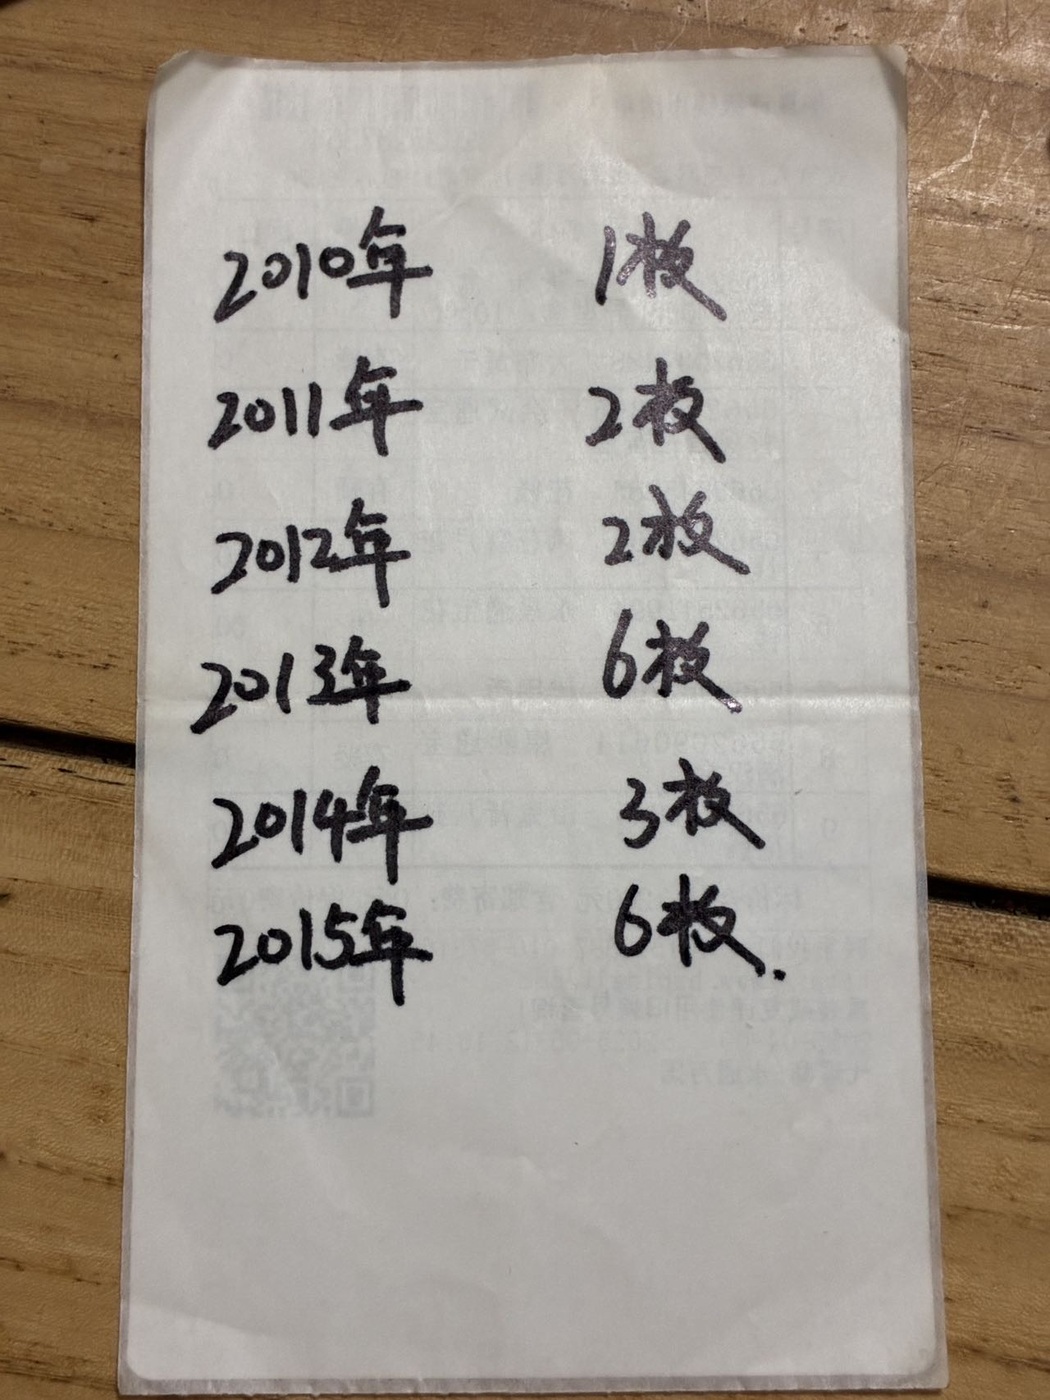 2010年 1枚
2011年 2枚
2012年 2枚
2013年 6枚
2014年 3枚
2015年 6枚.